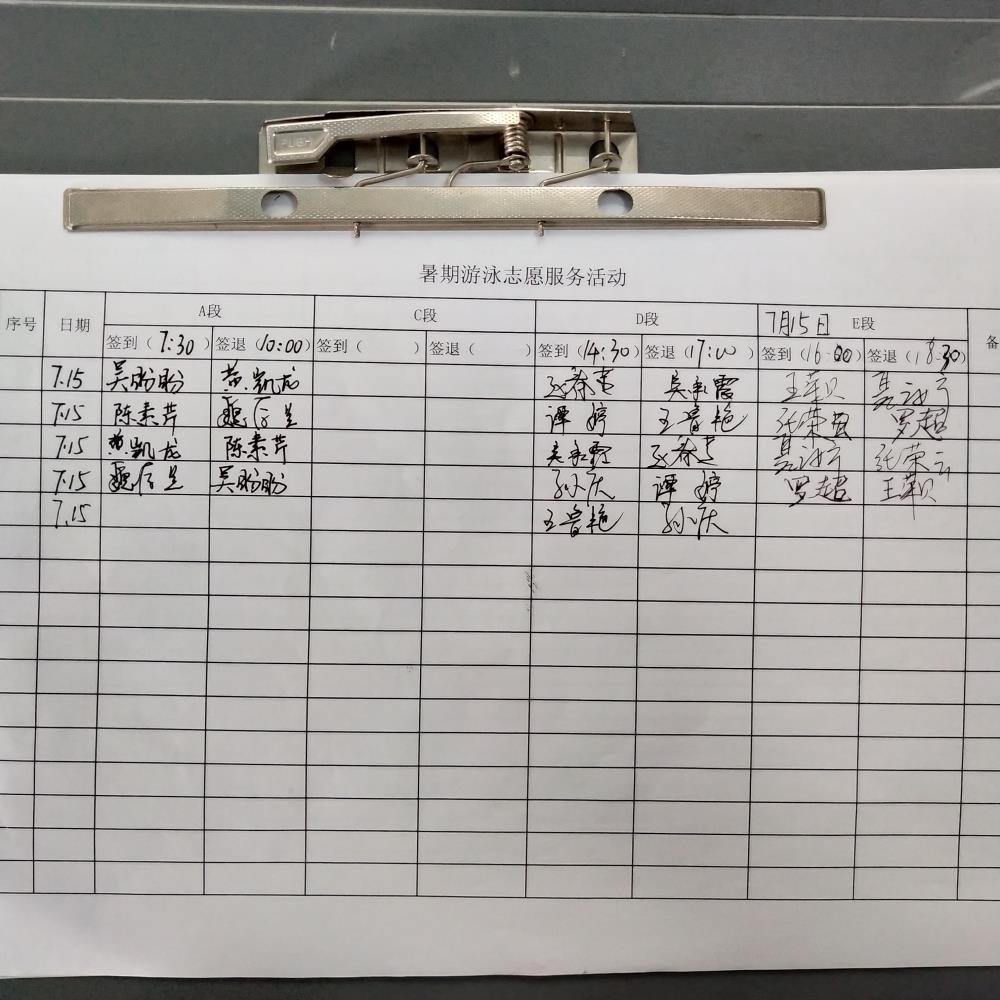 PUSH
暑期游泳志愿服务活动
序号 日期 A段 C段 D段 7月15日 E段 备
签到（7:30） 签退（10:00） 签到（ ） 签退（ ） 签到（14:30） 签退（17:00） 签到（16:00） 签退（18:30）
7.15 吴盼盼 黄凯龙 吴永霞 王颖 聂
7.15 陈素芹 谭婷 王鲁艳 张荣云 罗超
7.15 黄凯龙 陈素芹 吴永霞 聂 张荣云
7.15 吴盼盼 孙庆 谭婷 罗超 王颖
7.15 王鲁艳 孙庆